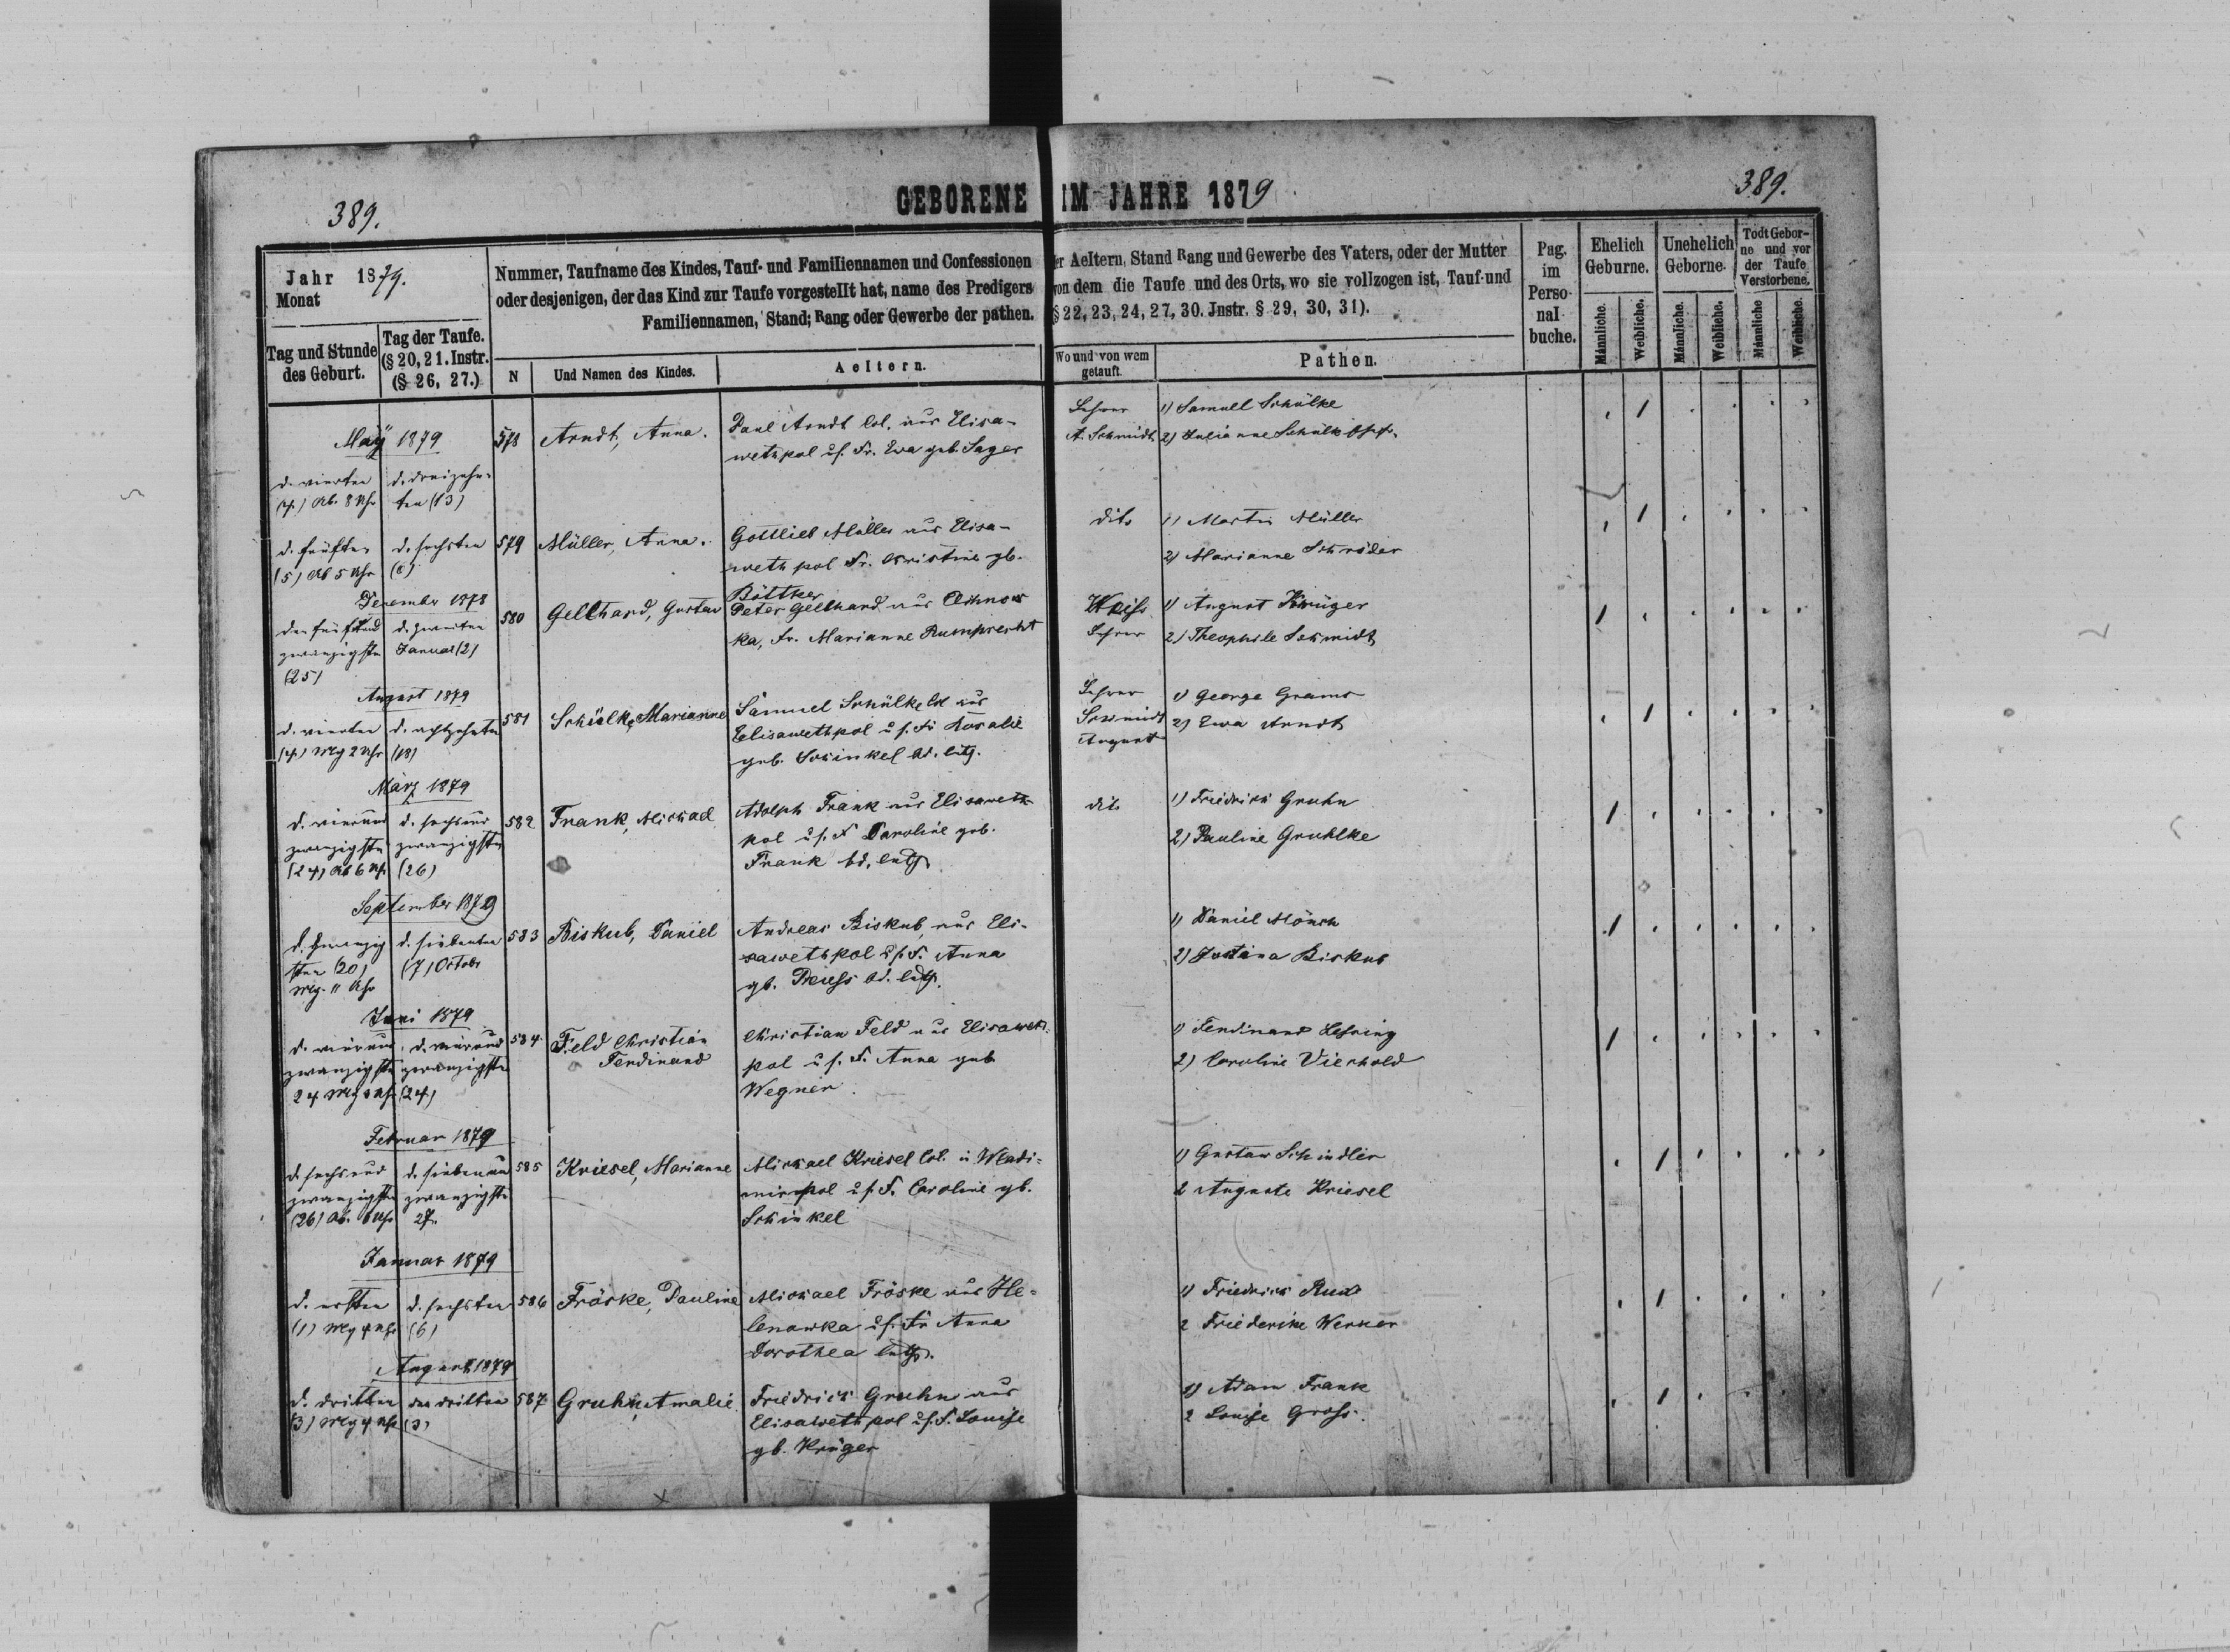 389.
GEBORENE IM JAHRE 1879
389.
Jahr 1879.
Monat
Tag und Stunde
des Geburt.
Tag der Taufe.
(§ 20, 21. Instr.
(§ 26, 27.)
Nummer, Taufname des Kindes, Tauf- und Familiennamen und Confessionen
oder desjenigen, der das Kind zur Taufe vorgestellt hat, name des Predigers
Familiennamen, Stand; Rang oder Gewerbe der pathen.
N
Und Namen des Kindes.
Aeltern.
er Aeltern, Stand Rang und Gewerbe des Vaters, oder der Mutter
von dem die Taufe und des Orts, wo sie vollzogen ist, Tauf-und
§ 22, 23, 24, 27, 30. Jnstr. § 29, 30, 31).
Wo und von wem
getauft
Pathen.
Pag.
im
Perso-
nal-
buche.
Ehelich
Geburne.
Unehelich
Geborne.
Todt Gebor-
ne und vor
der Taufe
Verstorbene.
Männliche.
Weibliche.
Männliche.
Weibliche.
Männliche
Weibliche.
May 1879
d. vierten
(4.) Ab. 8 Uhr
d. dreizehn-
ten (13)
578
Arndt, Anna.
Paul Arndt Col. aus Elisa-
wethpol u s. Fr. Ewa geb. Sager
Lehrer
A. Schmidt
1) Samuel Schülke
2) Julianne Schülke
d. fünften
(5) Ab 5 Uhr
d. sechsten
(6)
579
Müller, Anna.
Gottlieb Müller aus Elisa-
wethpol Fr. Christine gb.
Böttker
dito
1) Martin Müller
2) Marianne Schröder
Dezember 1878
den fünfund
zwanzigsten
(25)
d. zweiten
Januar (2)
580
Gellhard, Gustav
Peter Gellhard aus
ka, Fr. Marianne Rumprecht
Weiss
Lehrer
1) August Krüger
2) Theophile Schmidt
August 1879
d. vierten
(4) Mg 2 Uhr
d. achtzehnten
(18)
581
Schülke, Marianne
Samuel Schülke Col aus
Elisawethpol u s. Fr Rosalie
geb. Schinkel bd. luth.
Lehrer
Schmidt
August
1) George Grams
2) Ewa Arndt
März 1879
d. vierund
zwanzigsten
(24) Ab 6 Uhr
d. sechsund
zwanzigsten
(26)
582
Frank, Michael
Adolph Frank aus Elisaweth-
pol u s. F Caroline geb.
Frank bd. luth.
dito
1) Friedrich Gruhn
2) Pauline Gruhlke
September 1879
d. zwanzig
sten (20)
Mg. 11 Uhr
d. siebenten
(7) October
583
Biskub, Daniel
Andreas Biskub aus Eli-
sawethpol u s. F. Anna
gb. Preuss bd. luth.
1) Daniel Mönch
2) Justina Biskub
Juni 1879
d. vierund
zwanzigsten
24 Mg Uhr
d. vierund
zwanzigsten
(24)
584
Feld Christian
Ferdinand
Christian Feld aus Elisaweth-
pol u s. F. Anna geb
Wegner
1) Ferdinand
2) Caroline Vierhold
Februar 1879
d. sechsund
zwanzigsten
(26) Ab. 6 Uhr
d. siebenund
zwanzigsten
27.
585
Kriesel, Marianne
Michael Kriesel Col. in Wladi-
mirpol u s. F. Caroline gb.
Schinkel
1) Gustav Schindler
2 Auguste Kriesel
Januar 1879
d. ersten
(1) Mg 4 Uhr
d. sechsten
(6)
586
Fröske, Pauline
Michael Fröske aus He-
lenowka u s. Fr Anna
Dorothea luth.
1) Friedrich
2 Friederike Werner
August 1879
d. dritten
(3) Mg 4 Uhr
den dritten
(3)
587
Gruhn, Amalie
Friedrich Gruhn aus
Elisawethpol u s. F. Louise
gb. Krüger
1) Adam Frank
2 Louise Gross.